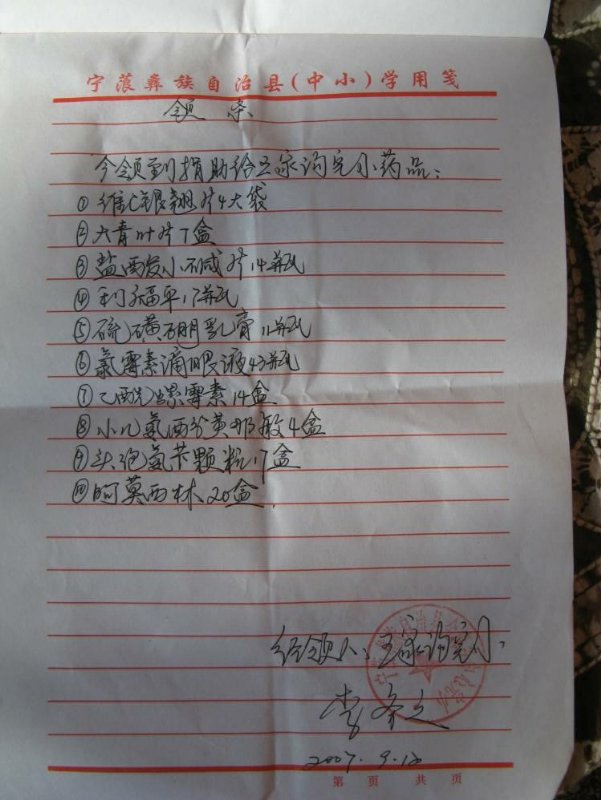 宁蒗彝族自治县(中小)学用笺
领条
今领到捐助给王家沟完小药品:
①维C银翘片4大袋
②大青叶片7盒
③盐酸小碱片14瓶
④利福平17瓶
⑤硫磺硼砂乳膏11瓶
⑥氯霉素滴眼液43瓶
⑦乙酰螺霉素14盒
⑧小儿氨酚黄那敏4盒
⑨头孢氨苄颗粒17盒
⑩阿莫西林20盒.
经领人:王家沟完小,
李
2007.9.12
第 页 共 页